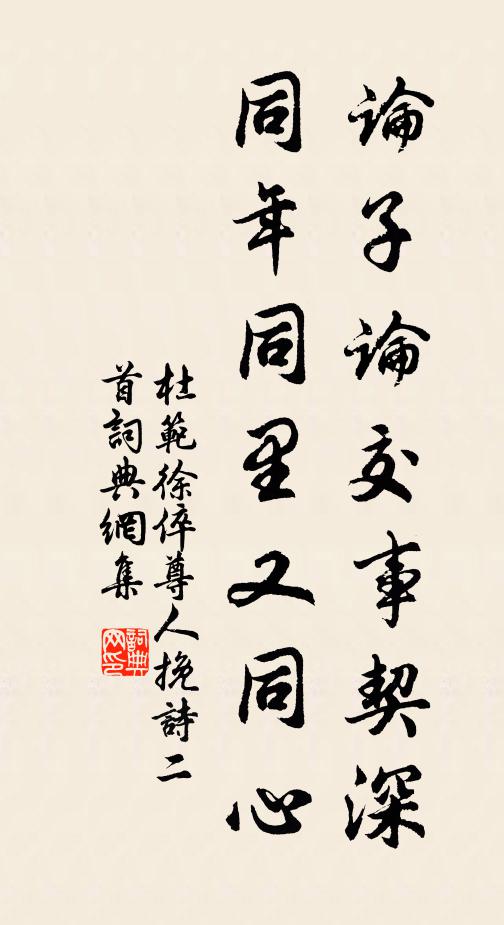 論子論交事契深
同年同里又同心
杜範徐倅尊人挽詩二
首詞典網集
詞典
网印